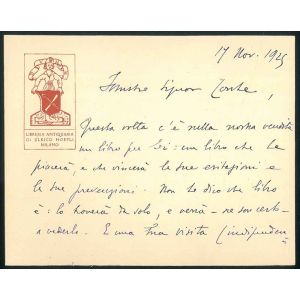 17 Nov. 1925
LIBRERIA ANTIQUARIA
DI ULRICO HOEPLI
MILANO
Illustre Signor Conte,
Questa volta c'è nella nostra vendita
un libro per Lei: un libro che La
piacerà, e che vincerà le sue esitazioni e
le sue prevenzioni. Non Le dico che libro
è: lo troverà da solo, e verrà - ne son certo -
a vederlo. E una Sua visita (indipenden